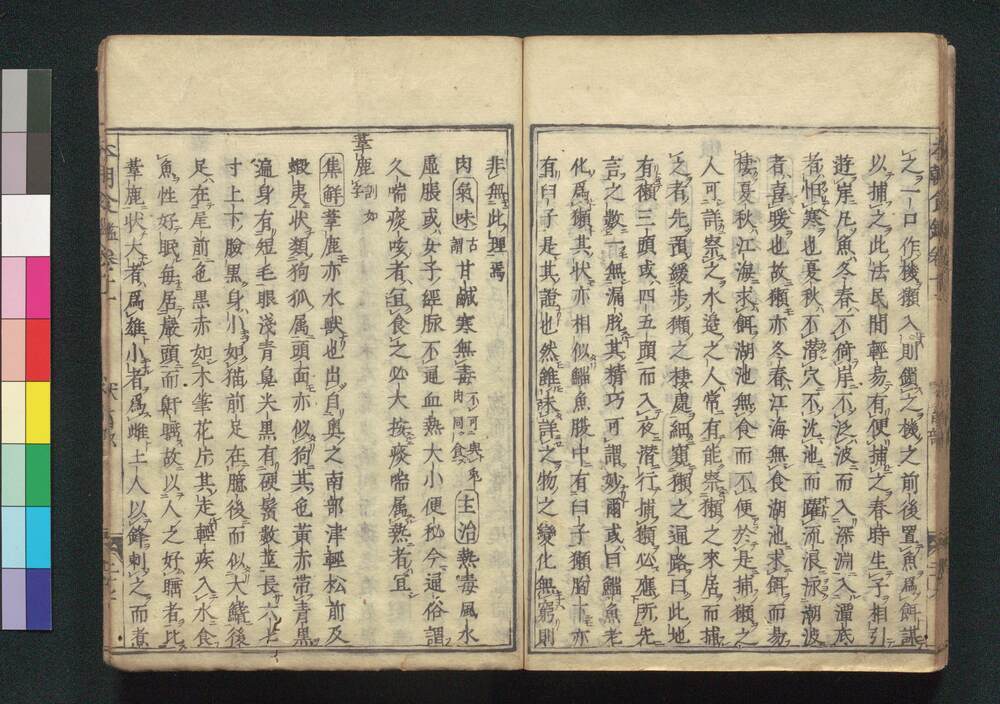 之一ノ口作機獺入則鎖之機之前後置魚爲餌誑
以捕之此法民間輕易有便捕之春時生子相引
遊岸凡魚冬春不倚岸不泛波而入深淵入潭底
者怕寒也夏秋不潜穴不沈池而躍流浪泳潮波
者喜暖也故獺亦冬春江海無食湖池求餌而易
棲夏秋江海求餌湖池無食而不便於是捕獺之
人可詳察之水邉之人常有能祭獺之來居而捕
之者先預緩歩獺之棲處細窺獺之通路曰此地
有獺三頭或四五頭而入夜潜行捕獺必應所先
言之數一無漏脱其精巧可謂妙爾或曰鯔魚老
化爲獺其状亦相似鯔魚腹中有臼子獺胸下亦
有臼子是其證也然雖未詳之物之變化無窮則
非無此理焉
肉氣味甘鹹寒無毒不可與兎肉同食主治熱毒風水
虛脹或女子經脉不通血熱大小便秘今通俗謂
久喘痰咳者宜食之必大按痰喘属熱者宜
葦鹿訓如字
集解葦鹿亦水獸也出自奥之南部津輕松前及
蝦夷状類狗狐属頭面亦似狗其色黄赤帶青黒
遍身有短毛眼淺青鼻尖黒有硬鬚數莖長六七
寸上下臉黒身小如猫前足在臆後而似大鰭後
足在尾前色黒赤如木筆花片其走輕疾入水食
魚性好眠毎居巖頭而鼾睡故以人之好睡者比
葦鹿状大者爲雄小者爲雌土人以鋒刺之而煮